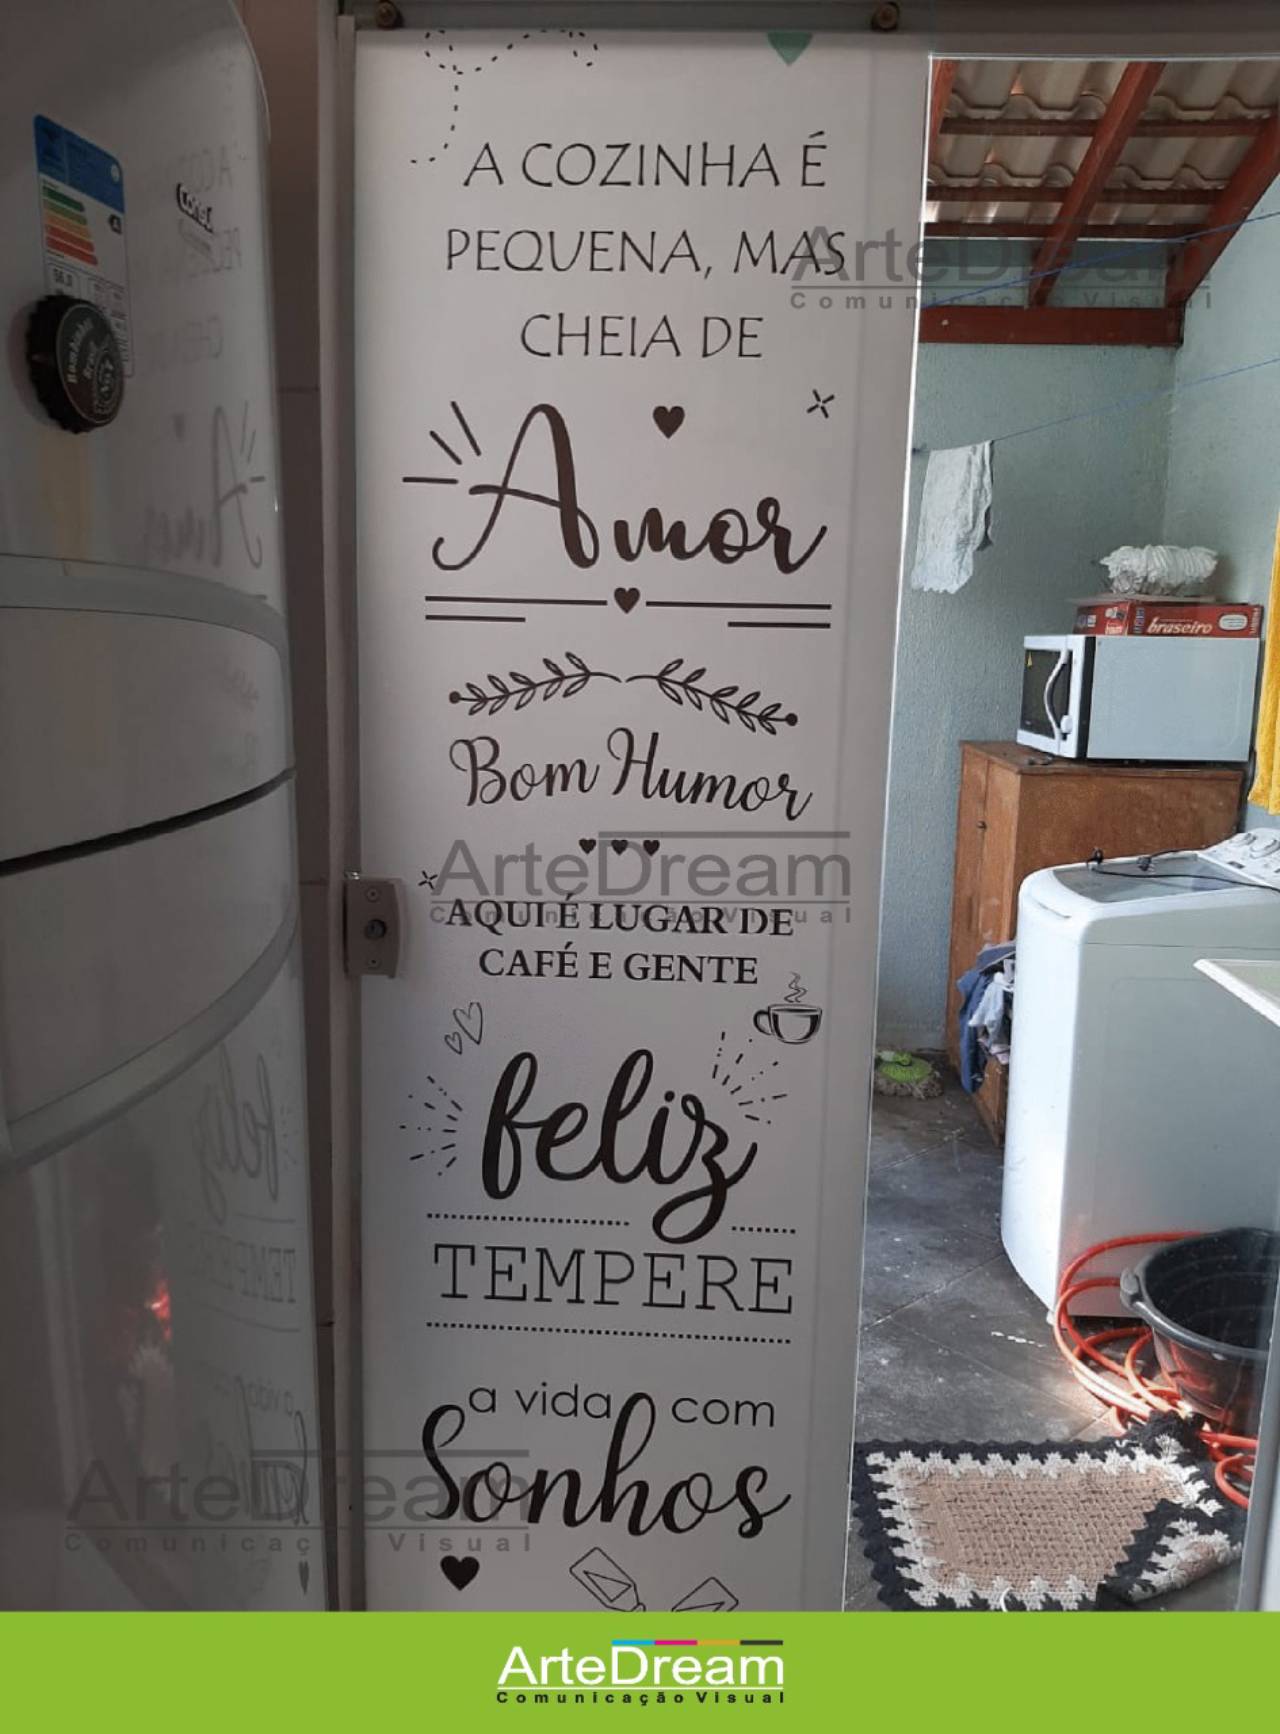 A COZINHA É
PEQUENA, MAS
CHEIA DE
Amor
Bom Humor
AQUI É LUGAR DE
CAFÉ E GENTE
feliz
TEMPERE
a vida com
Sonhos
Consul
braseiro
ArteDream
Comunicação Visual
ArteDream
Comunicação Visual
ArteDream
Comunicação Visual
ArteDream
Comunicação Visual